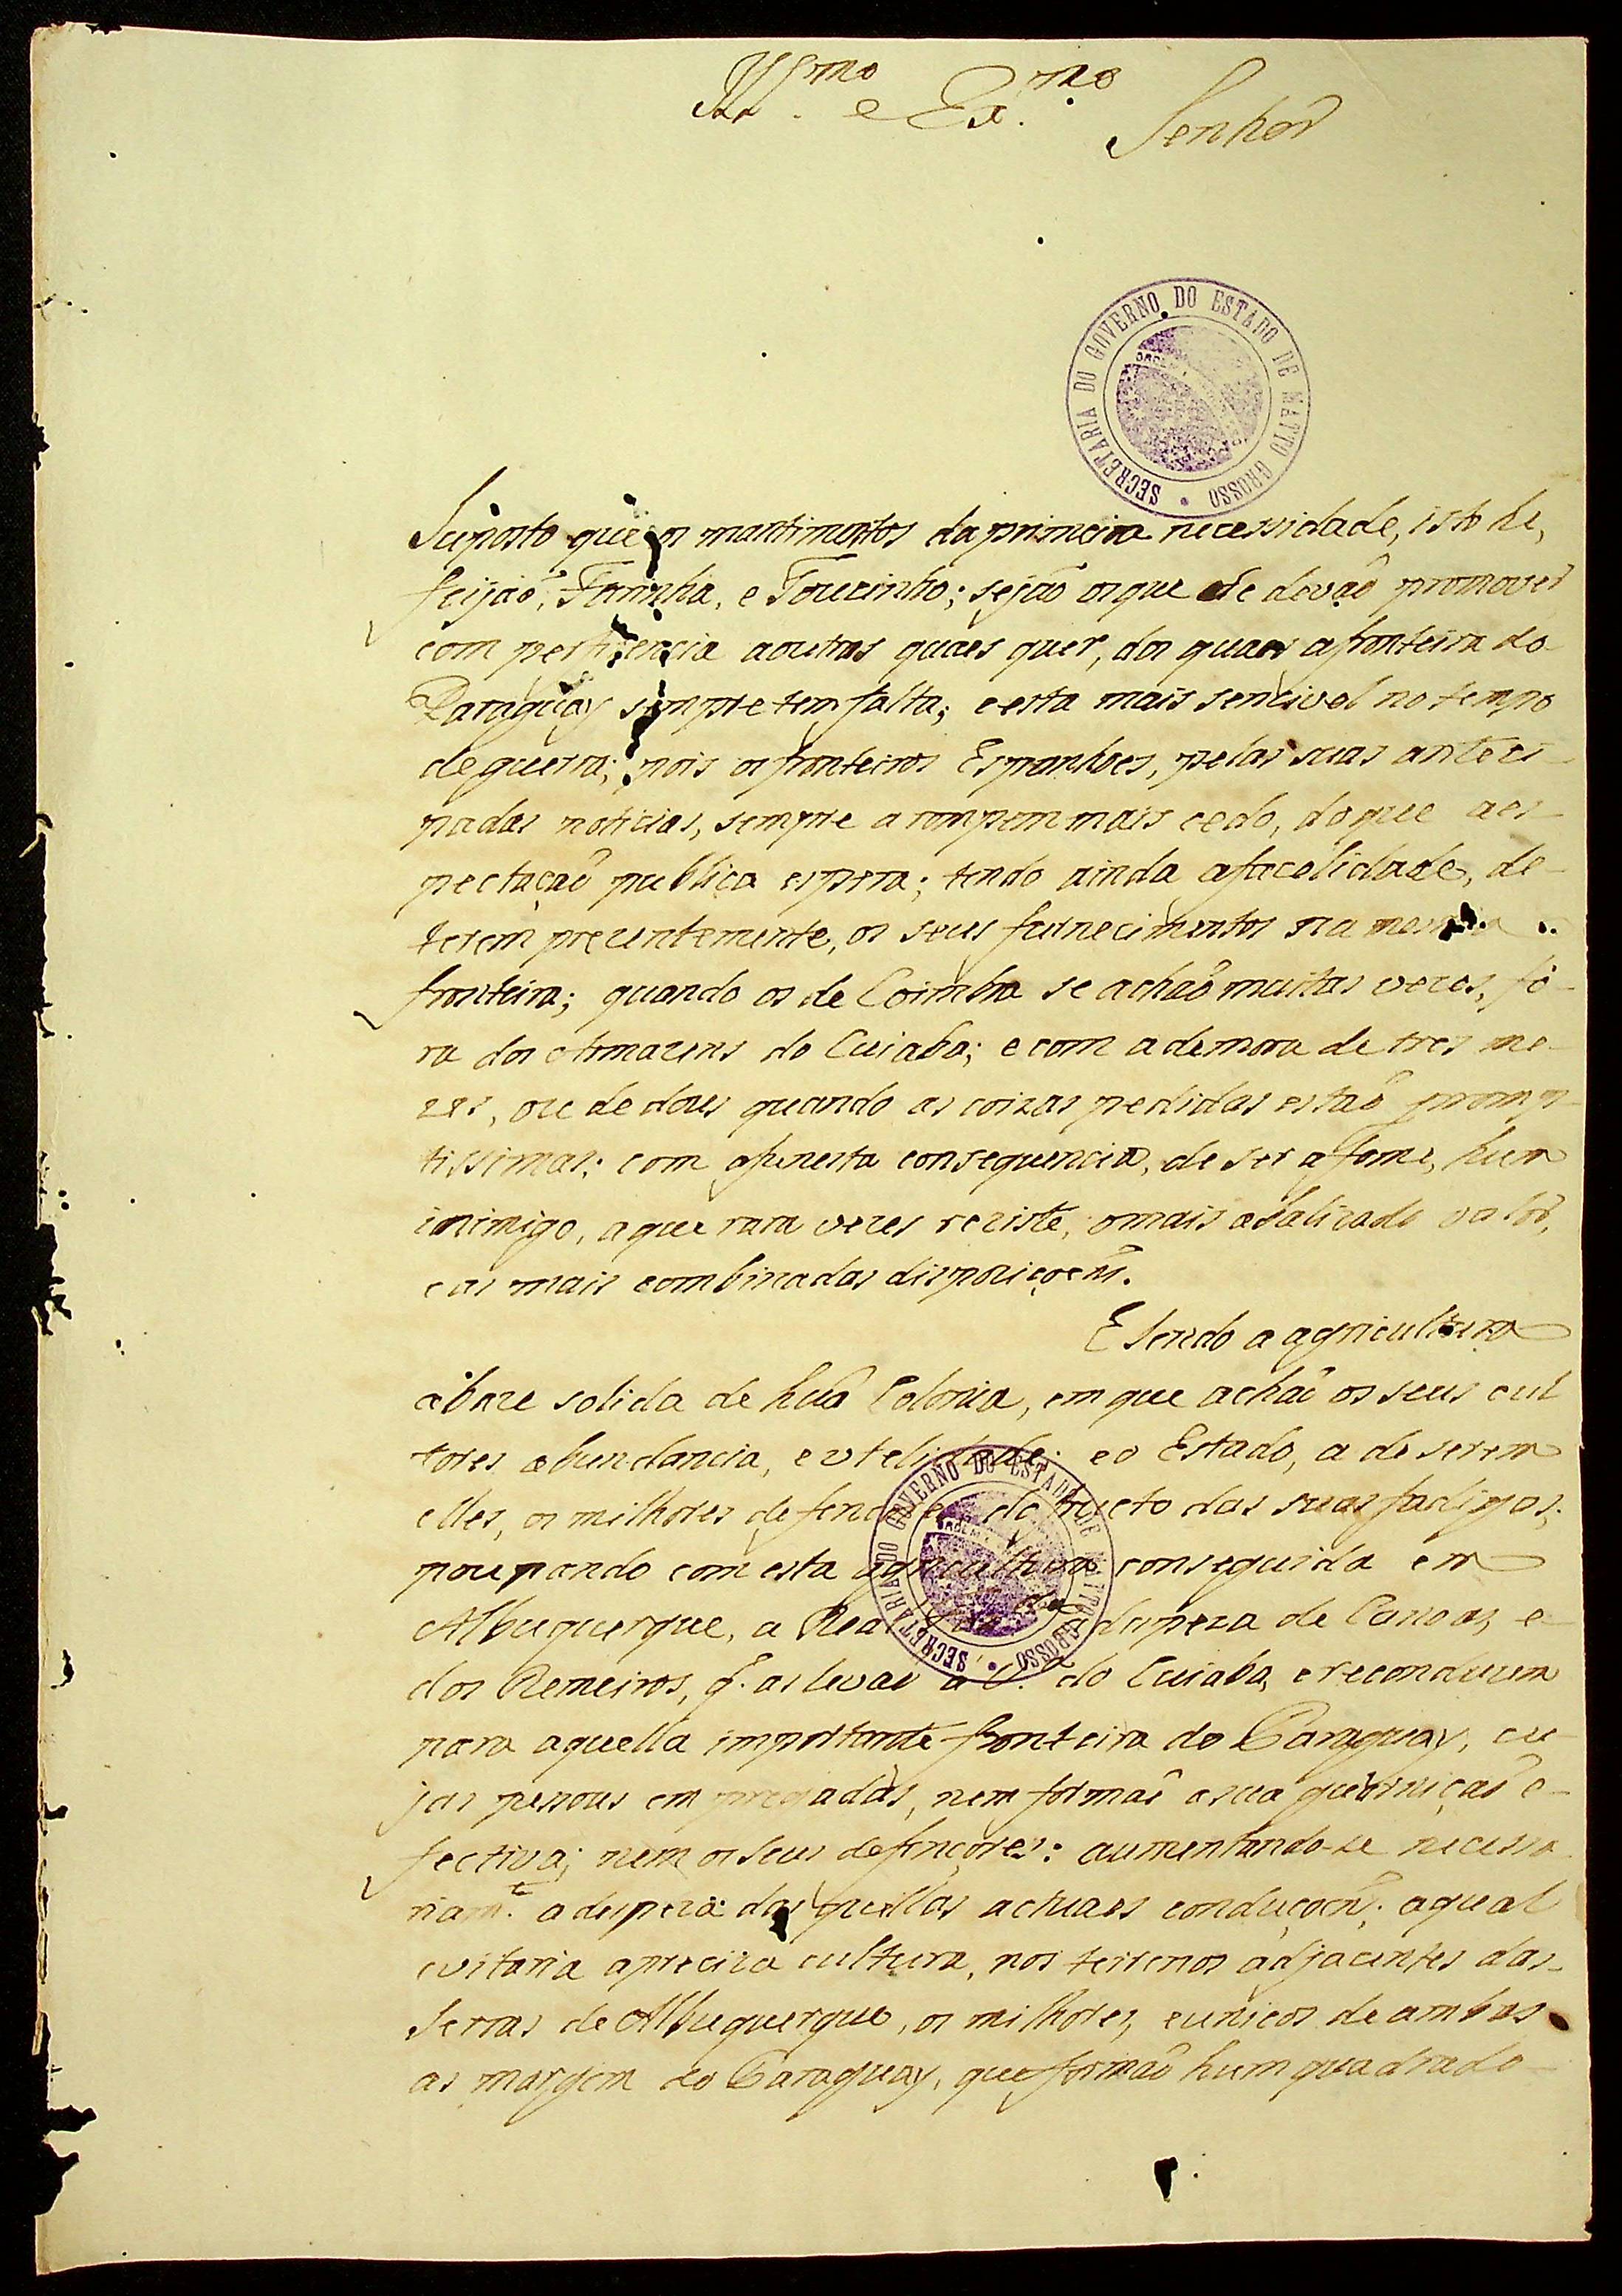 Ill.mo e Ex.mo Senhor
SECRETARIA DO GOVERNO DO ESTADO DE MATTO GROSSO
Suposto que os mantimentos da primeira necessidade, isto he,
feijaõ, Farinha, e Toucinho; sejaõ os que se devaõ promover
com pertinencia a outros quaes quer, dos quaes a fronteira do
Paraguay sempre tem falta; e esta mais sensivel no tempo
de guerra; pois os fronteiros Espanhoes, pelas suas anteci-
padas noticias, sempre a rompem mais cedo, do que a es-
pectaçaõ publica espera; tendo ainda a facelidade, de
terem prezentemente, os seus furnecimentos na mesma
fronteira; quando os de Coimbra se achaõ muitas vezes, fó-
ra dos Armazens do Cuiabá; e com a demora de tres me-
zes, ou de dous quando as coizas pedidas estaõ promp-
tissimas; com a funesta consequencia, de ser a fome, hum
inimigo, a que rara vezes reziste, o mais abalizado valor,
e as mais combinadas dispoziçoens.
E sendo a agricultura
a baze solida de huã Colonia, em que achaõ os seus cul
tores abundancia, e utelidade; e o Estado, a de serem
elles, os milhores defençores do fructo das suas fadigas;
poupando com esta agricultura conseguida em
Albuquerque, a Real a despeza de Canoas, e
dos Remeiros, q. as levaõ a V.a do Cuiabá, e reconduzem
para aquella importante fronteira do Paraguay, cu-
jas pessoas empregadas, nem formaõ a sua guarniçaõ e-
fectiva; nem os seus defençores: aumentando-se necessa
riam.te a despeza daquellas actuaes conduçoens; a qual
evitaria a preciza cultura, nos terrenos adjacentes das
Serras de Albuquerque, os milhores, e unicos de ambas
as margem do Paraguay, que formaõ hum quadrado
SECRETARIA DO GOVERNO DO ESTADO DE MATTO GROSSO